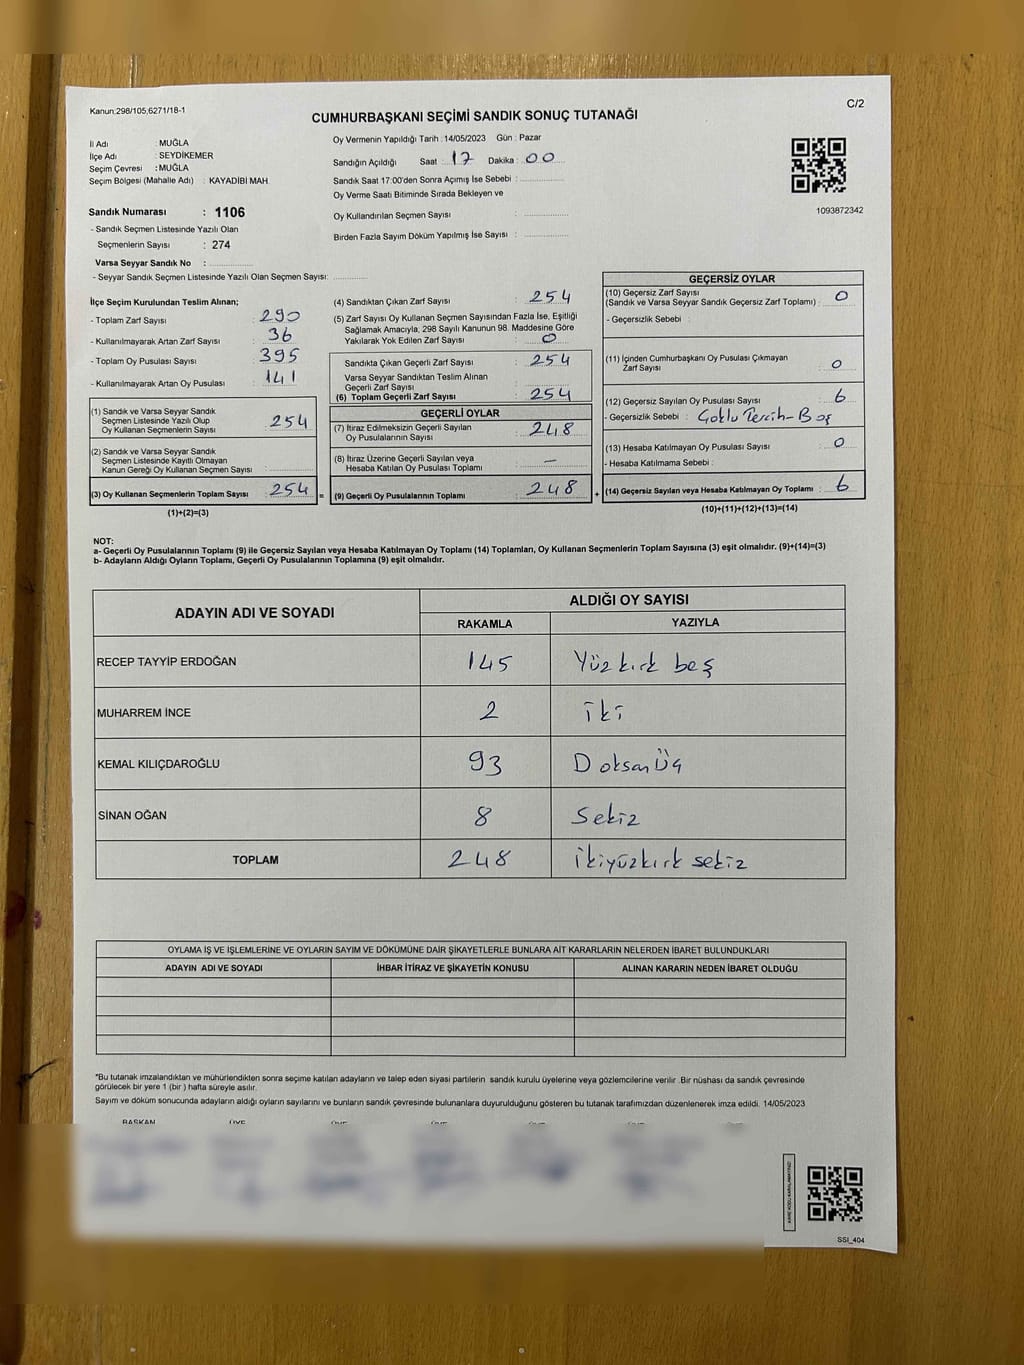 Kanun:298/105,6271/18-1
C/2
CUMHURBAŞKANI SEÇİMİ SANDIK SONUÇ TUTANAĞI
İl Adı : MUĞLA
İlçe Adı : SEYDİKEMER
Seçim Çevresi : MUĞLA
Seçim Bölgesi (Mahalle Adı) : KAYADİBİ MAH.
Sandık Numarası : 1106
- Sandık Seçmen Listesinde Yazılı Olan
Seçmenlerin Sayısı : 274
Varsa Seyyar Sandık No :
- Seyyar Sandık Seçmen Listesinde Yazılı Olan Seçmen Sayısı:
Oy Vermenin Yapıldığı Tarih : 14/05/2023 Gün : Pazar
Sandığın Açıldığı Saat : 17 Dakika : 00
Sandık Saat 17:00'den Sonra Açımış İse Sebebi :
Oy Verme Saati Bitiminde Sırada Bekleyen ve
Oy Kullandırılan Seçmen Sayısı :
Birden Fazla Sayım Döküm Yapılmış İse Sayısı :
1093872342
İlçe Seçim Kurulundan Teslim Alınan;
- Toplam Zarf Sayısı : 290
- Kullanılmayarak Artan Zarf Sayısı : 36
- Toplam Oy Pusulası Sayısı : 395
- Kullanılmayarak Artan Oy Pusulası : 141
(1) Sandık ve Varsa Seyyar Sandık
Seçmen Listesinde Yazılı Olup
Oy Kullanan Seçmenlerin Sayısı : 254
(2) Sandık ve Varsa Seyyar Sandık
Seçmen Listesinde Kayıtlı Olmayan
Kanun Gereği Oy Kullanan Seçmen Sayısı :
(3) Oy Kullanan Seçmenlerin Toplam Sayısı : 254
(1)+(2)=(3)
(4) Sandıktan Çıkan Zarf Sayısı : 254
(5) Zarf Sayısı Oy Kullanan Seçmen Sayısından Fazla İse, Eşitliği
Sağlamak Amacıyla, 298 Sayılı Kanunun 98. Maddesine Göre
Yakılarak Yok Edilen Zarf Sayısı : 0
Sandıkta Çıkan Geçerli Zarf Sayısı : 254
Varsa Seyyar Sandıktan Teslim Alınan
Geçerli Zarf Sayısı :
(6) Toplam Geçerli Zarf Sayısı : 254
GEÇERLİ OYLAR
(7) İtiraz Edilmeksizin Geçerli Sayılan
Oy Pusulalarının Sayısı : 248
(8) İtiraz Üzerine Geçerli Sayılan veya
Hesaba Katılan Oy Pusulası Toplamı : –
= (9) Geçerli Oy Pusulalarının Toplamı : 248
GEÇERSİZ OYLAR
(10) Geçersiz Zarf Sayısı
(Sandık ve Varsa Seyyar Sandık Geçersiz Zarf Toplamı) : 0
- Geçersizlik Sebebi :
(11) İçinden Cumhurbaşkanı Oy Pusulası Çıkmayan
Zarf Sayısı : 0
(12) Geçersiz Sayılan Oy Pusulası Sayısı : 6
- Geçersizlik Sebebi : Çoklu Tercih-Boş
(13) Hesaba Katılmayan Oy Pusulası Sayısı : 0
- Hesaba Katılmama Sebebi :
+ (14) Geçersiz Sayılan veya Hesaba Katılmayan Oy Toplamı : 6
(10)+(11)+(12)+(13)=(14)
NOT:
a- Geçerli Oy Pusulalarının Toplamı (9) ile Geçersiz Sayılan veya Hesaba Katılmayan Oy Toplamı (14) Toplamları, Oy Kullanan Seçmenlerin Toplam Sayısına (3) eşit olmalıdır. (9)+(14)=(3)
b- Adayların Aldığı Oyların Toplamı, Geçerli Oy Pusulalarının Toplamına (9) eşit olmalıdır.
ADAYIN ADI VE SOYADI ALDIĞI OY SAYISI
RAKAMLA YAZIYLA
RECEP TAYYİP ERDOĞAN 145 Yüzkırk beş
MUHARREM İNCE 2 iki
KEMAL KILIÇDAROĞLU 93 DoksanÜç
SİNAN OĞAN 8 Sekiz
TOPLAM 248 ikiyüzkırk sekiz
OYLAMA İŞ VE İŞLEMLERİNE VE OYLARIN SAYIM VE DÖKÜMÜNE DAİR ŞİKAYETLERLE BUNLARA AİT KARARLARIN NELERDEN İBARET BULUNDUKLARI
ADAYIN ADI VE SOYADI İHBAR İTİRAZ VE ŞİKAYETİN KONUSU ALINAN KARARIN NEDEN İBARET OLDUĞU
*Bu tutanak imzalandıktan ve mühürlendikten sonra seçime katılan adayların ve talep eden siyasi partilerin sandık kurulu üyelerine veya gözlemcilerine verilir .Bir nüshası da sandık çevresinde
görülecek bir yere 1 (bir ) hafta süreyle asılır.
Sayım ve döküm sonucunda adayların aldığı oyların sayılarını ve bunların sandık çevresinde bulunanlara duyurulduğunu gösteren bu tutanak tarafımızdan düzenlenerek imza edildi. 14/05/2023
BAŞKAN ÜYE ÜYE ÜYE ÜYE ÜYE ÜYE
SSI_404